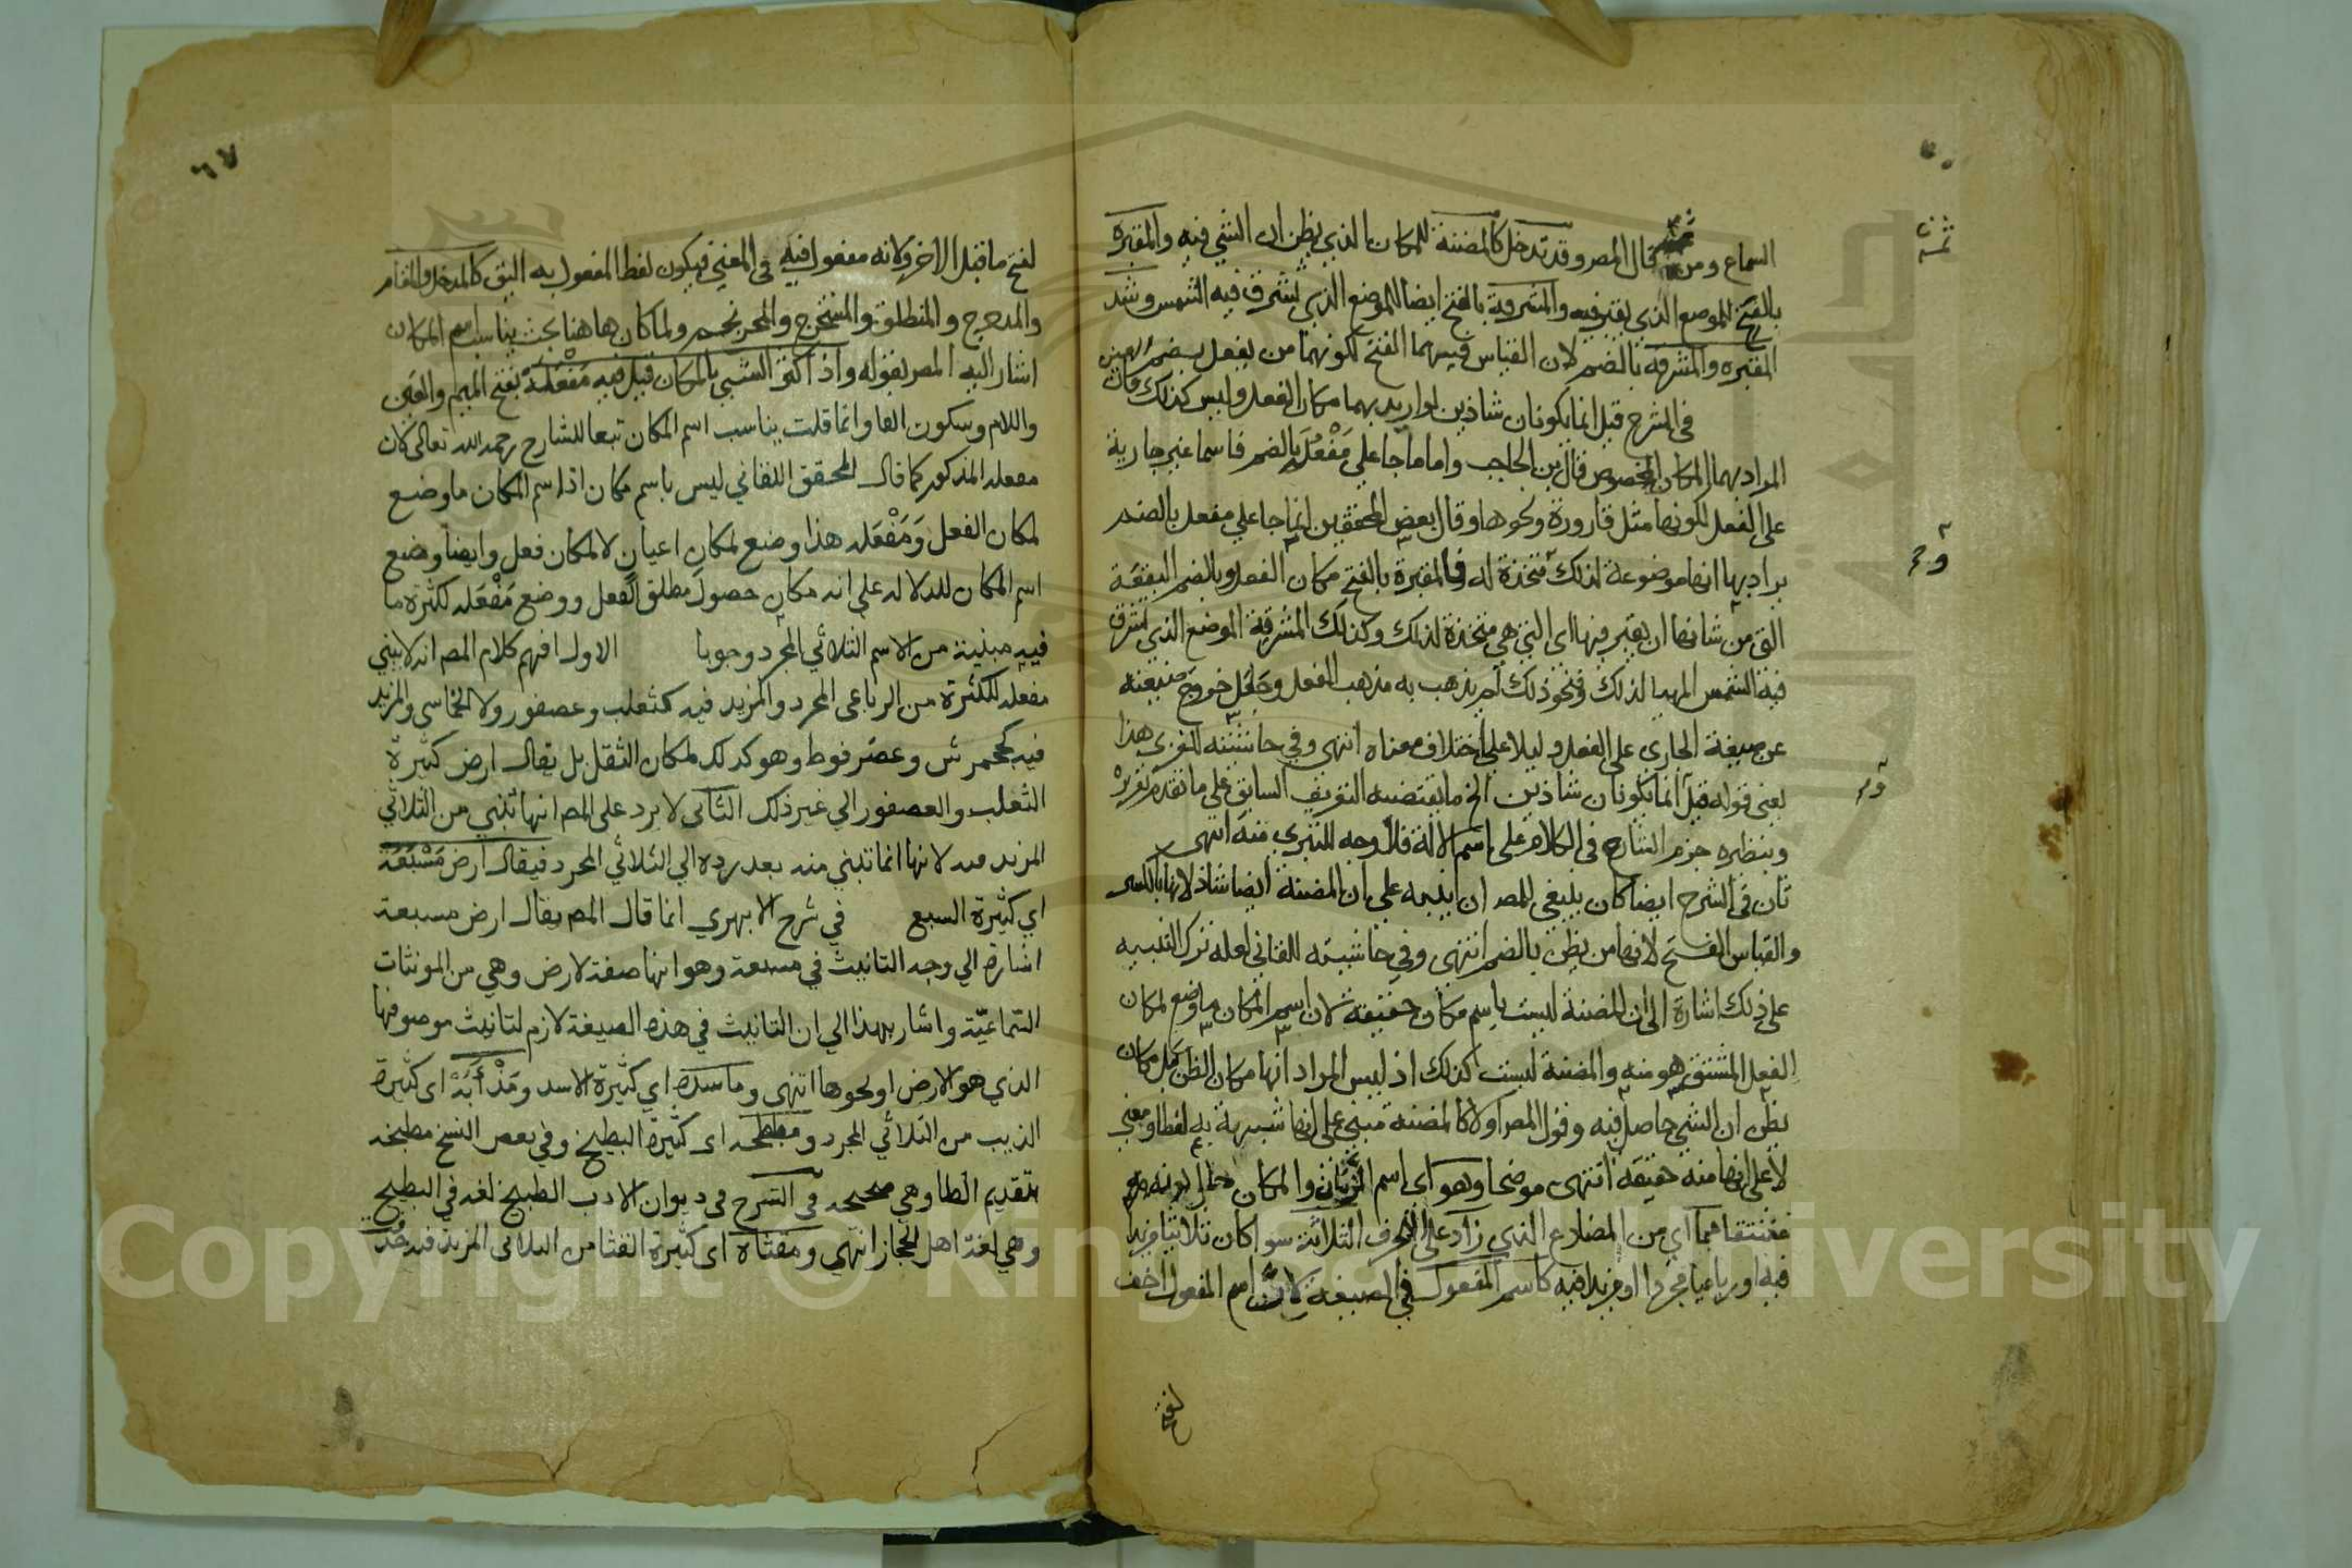 السماع ومن ثم قال المصر وقد تدخل كالمضنة للمكان الذي يظن ان الشي فيه والمقبرة
بالفتح للموضع الذي يقبر فيه والمشرقة بالفتح ايضا للموضع الذي تشرق فيه الشمس وشذ
المقبرة والمشرقة بالضم لان القياس فيهما الفتح لكونهما من يفعل بضم العين
في الشرح قيل انما يكونان شاذين لو اريد بهما مكان الفعل وليس كذلك فان
المراد بهما المكان المخصوص قال بن الحاجب واما ما جا على مَفْعُلَة بالضم فاسما غير جارية
على الفعل لكونها مثل قارورة ونحوها وقال بعض المحققين انما جا على مفعل بالضم
يراد بها انها موضوعة لذلك متخذة له فالمقبرة بالفتح مكان الفعل وبالضم البقعة
التي من شانها ان يقبر فيها اى التي هي متخذة لذلك وكذلك المشرقة الموضع الذي تشرق
فيه الشمس المهيا لذلك فنحو ذلك لم يذهب به مذهب الفعل وجعل خروج صيغته
عن صيغة الجارى على الفعل دليلا على اختلاف معناه انتهى وفي حاشيته للغزي هذا
يعنى قوله قيل انما يكونان شاذين الخ ما يقتضيه التعريف السابق على ما تقدم تقريره
وبنظيره جزم الشارح في الكلام على اسم الالة فلا وجه للتبري منه انتهى
ثان في الشرح ايضا كان ينبغي للمصر ان ينبه على ان المضنة ايضا شاذ لانها بالكسر
والقياس الفتح لانها من يظن بالضم انتهى وفي حاشيته للقاني لعله ترك التنبيه
على ذلك اشارة الى ان المضنة ليست باسم مكان حقيقة لان اسم المكان ما وضع لمكان
الفعل المشتق هو منه والمضنة ليست كذلك اذ ليس المراد انها مكان الظن بل مكان
يظن ان الشي حاصل فيه وقول المصر اولا كالمضنة مبنى على انها شبيهة به لفظا ومعنى
لا على انها منه حقيقة انتهى موضحا وهو اى اسم الزمان والمكان
مشتقا هما اي من المضارع الذي زاد على احرف الثلاثة سوا كان ثلاثيا مزيدا
فيه او رباعيا مجردا او مزيدا فيه كاسم المفعول في الصيغة لانَّ اسم المفعول اخف
لفتح
لفتح ما قبل الاخر ولانه مفعول فيه في المعنى فيكون لفظ المفعول به اليق كالمدخل والمقام
والمدحرج والمنطلق والمستخرج والمحرنجم ولما كان هاهنا بحث يناسب اسم المكان
اشار اليه المصر بقوله واذا كثر الشي بالمكان قيل فيه مَفْعَلَةٌ بفتح الميم والعين
واللام وسكون الفا وانما قلت يناسب اسم المكان تبعا للشارح رحمه الله تعالى لان
مفعله المذكور كما قال المحقق اللقاني ليس باسم مكان اذ اسم المكان ما وضع
لمكان الفعل وَمَفْعَله هذا وضع لمكان اعيان لا لمكان فعل وايضا وضع
اسم المكان للدلاله على انه مكان حصول مطلق الفعل ووضع مَفْعَله لكثرة ما
فيه مبنية من الاسم الثلاثي المجرد وجوبا الاول افهم كلام المصر انه لا يبني
مفعله للكثرة من الرباعى المجرد والمزيد فيه كثعلب وعصفور ولا الخماسى والمزيد
فيه كجحمرش وعضرفوط وهو كذلك لمكان الثقل بل يقال ارض كثيرة
الثعلب والعصفور الي غير ذلك الثاني لا يرد على المصر انها تبنى من الثلاثي
المزيد فيه لانها انما تبني منه بعد رده الي الثلاثي المجرد فيقال ارض مَسْبَعَة
اي كثيرة السبع في شرح الابهري انما قال المصر يقال ارض مسبعة
اشارة الي وجه التانيث في مسبعة وهو انها صفة لارض وهي من المونثات
السّماعيّة واشار بهذا الي ان التانيث في هذه الصيغة لازم لتانيث موصوفها
الذي هو الارض او نحوها انتهى وماسدة اي كثيرة الاسد ومَذْأَبَةٌ اى كثيرة
الذيب من الثلاثي المجرد ومبطخه اى كثيرة البطيخ وفي بعض النسخ مطبخه
بتقديم الطا وهي صحيحه في الشرح في ديوان الادب الطبيخ لغه في البطيخ
وهي لغة اهل الحجاز انتهى ومقثاة اى كثيرة القثا من الثلاثى المزيد فيه